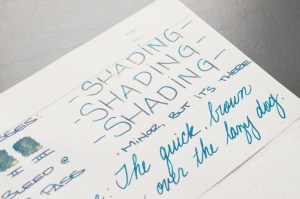 - SHADING -
- SHADING -
- SHADING -
• MINOR, BUT IT'S THERE
II III
BLEED @
PASS
The quick brown
over the lazy dog.